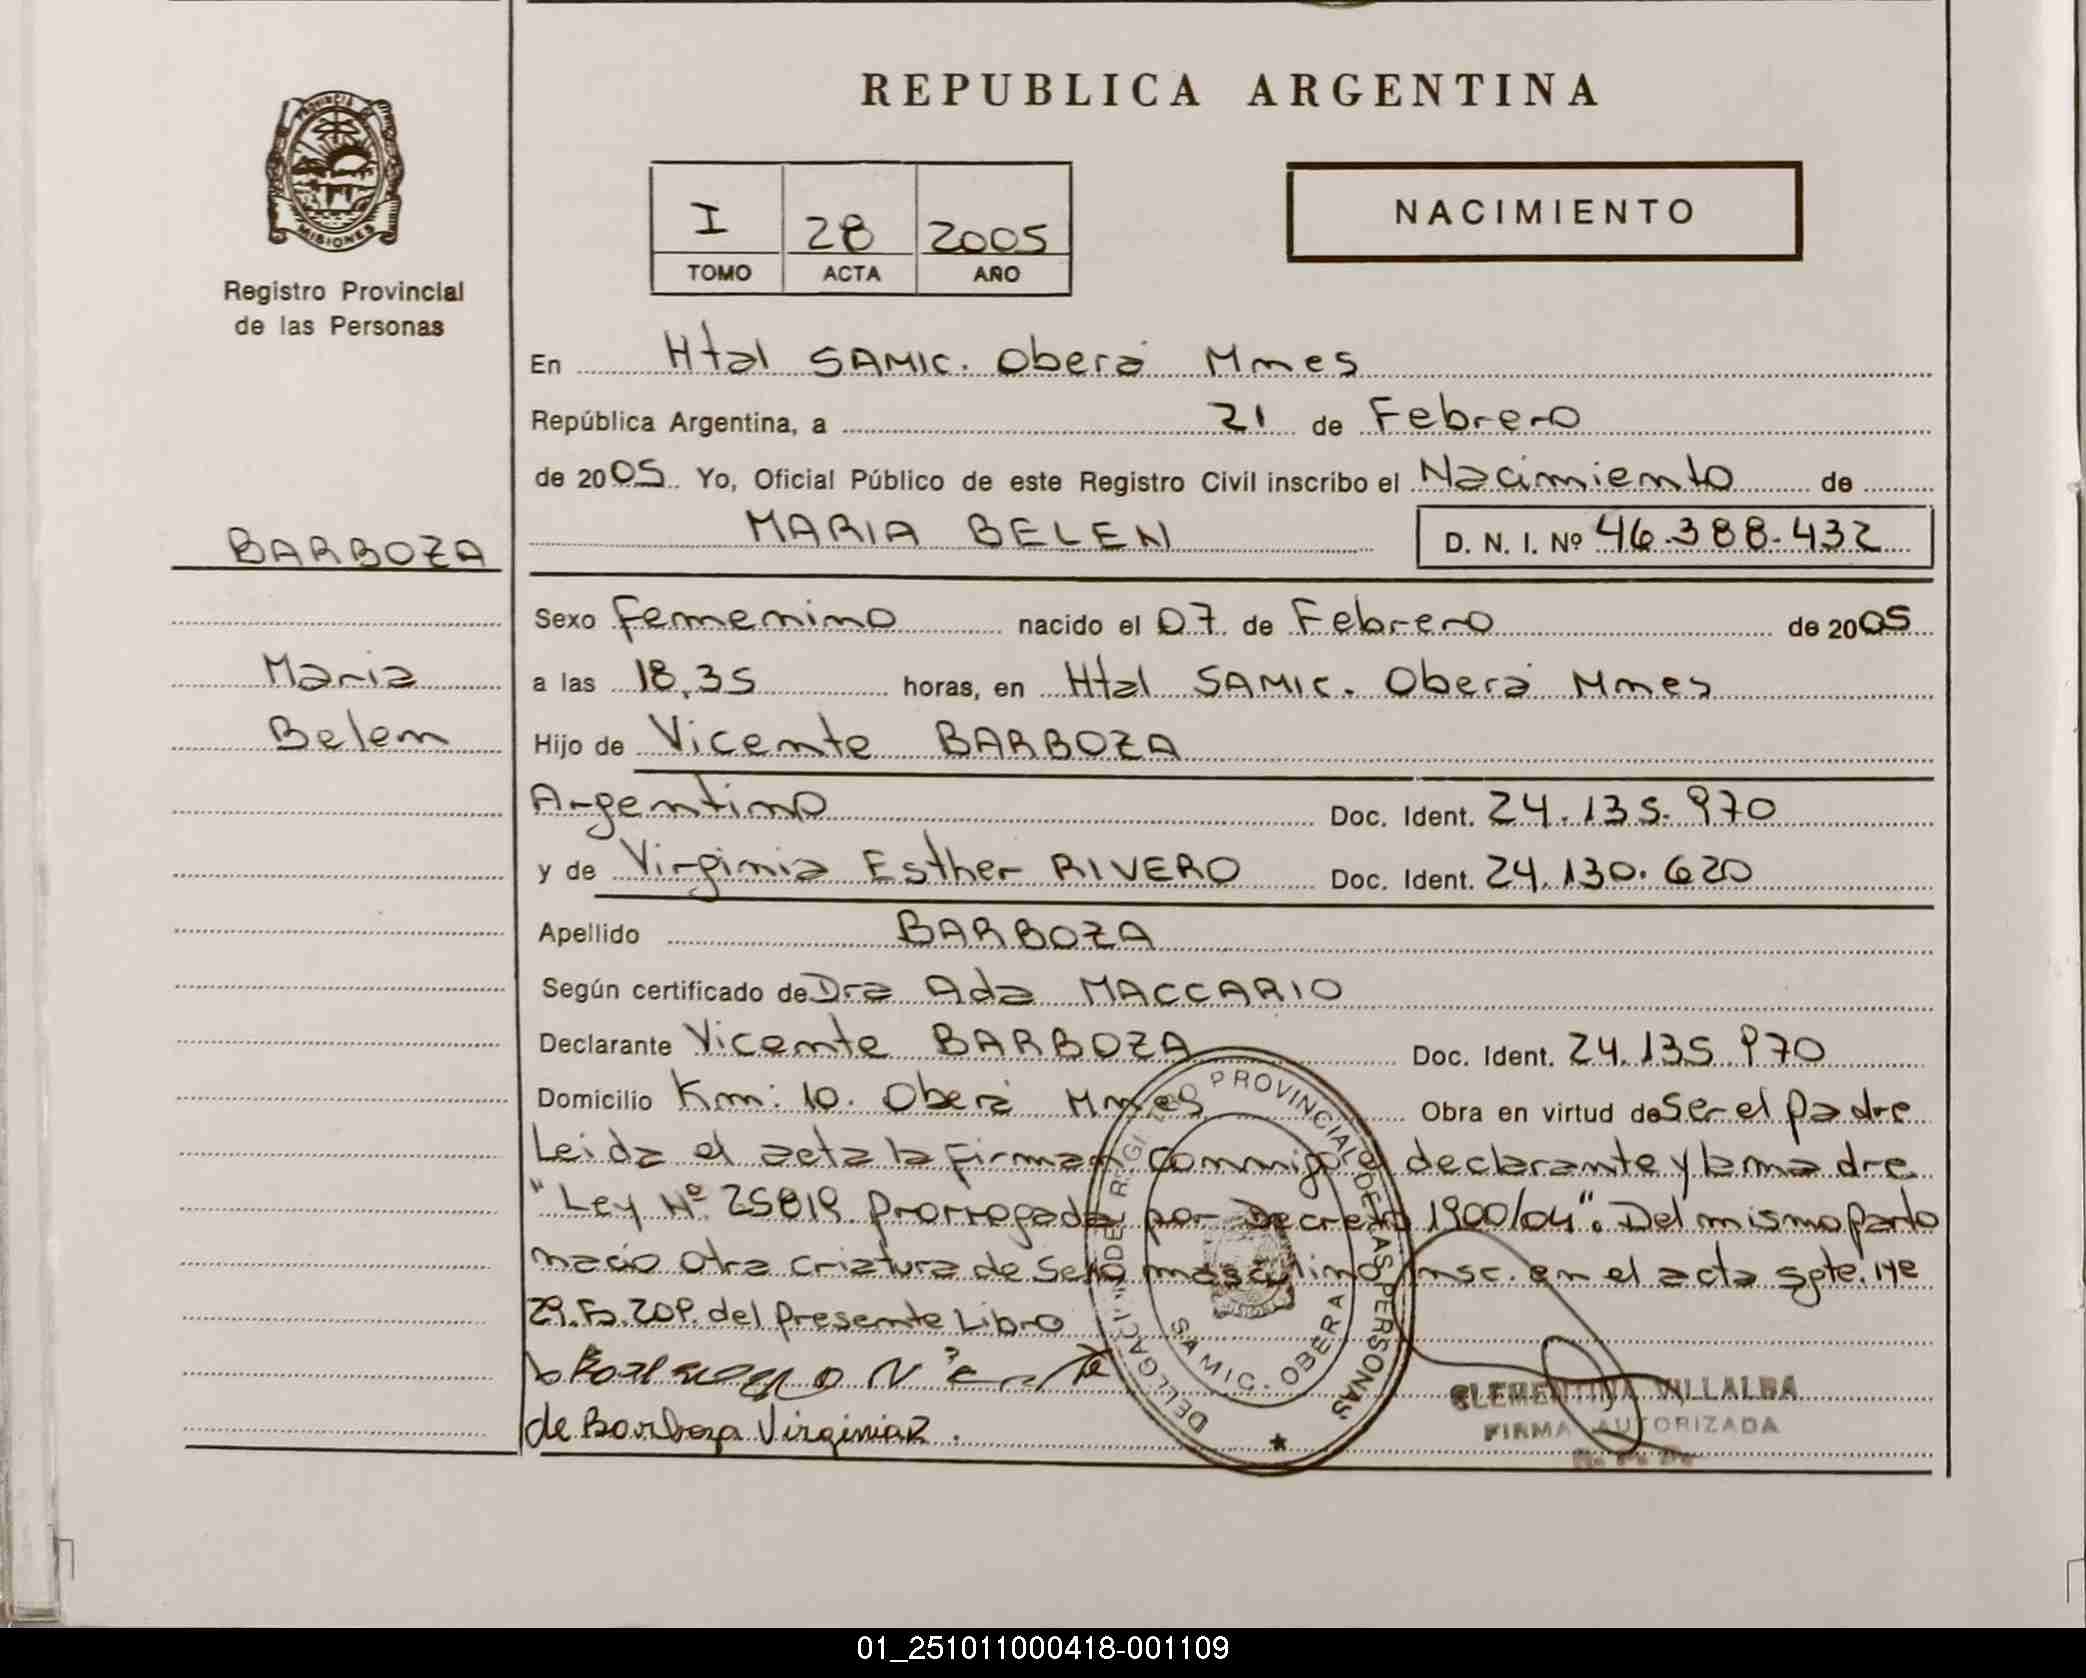 REPUBLICA ARGENTINA
PROVINCIA
MISIONES
Registro Provincial
de las Personas
I 28 2005
TOMO ACTA AÑO
NACIMIENTO
En Htal SAMIC. Oberá Mnes
República Argentina, a 21 de Febrero
de 2005 Yo, Oficial Público de este Registro Civil inscribo el Nacimiento de
MARIA BELEN D. N. I. Nº 46.388.432
BARBOZA
Maria
Belen
Sexo Femenino nacido el 07 de Febrero de 2005
a las 18,35 horas, en Htal SAMIC. Oberá Mnes
Hijo de Vicente BARBOZA
Argentino Doc. Ident. 24.135.970
y de Virginia Esther RIVERO Doc. Ident. 24.130.620
Apellido BARBOZA
Según certificado de Dra Ada MACCARIO
Declarante Vicente BARBOZA Doc. Ident. 24.135.970
Domicilio Km: 10. Oberá Mnes Obra en virtud de Ser el padre
Leida el acta la firman conmigo el declarante y la madre
"Ley Nº 25819 Prorrogada por Decreto 1900/04". Del mismo parto
nacio otra criatura de Sexo masculino insc. en el acta sgte.
29.Fº.20P. del Presente Libro
de Barboza Virginia R.
PROVINCIAL DE LAS PERSONAS
SAMIC. OBERA
CLEMENTINA VILLALBA
FIRMA AUTORIZADA
01_251011000418-001109